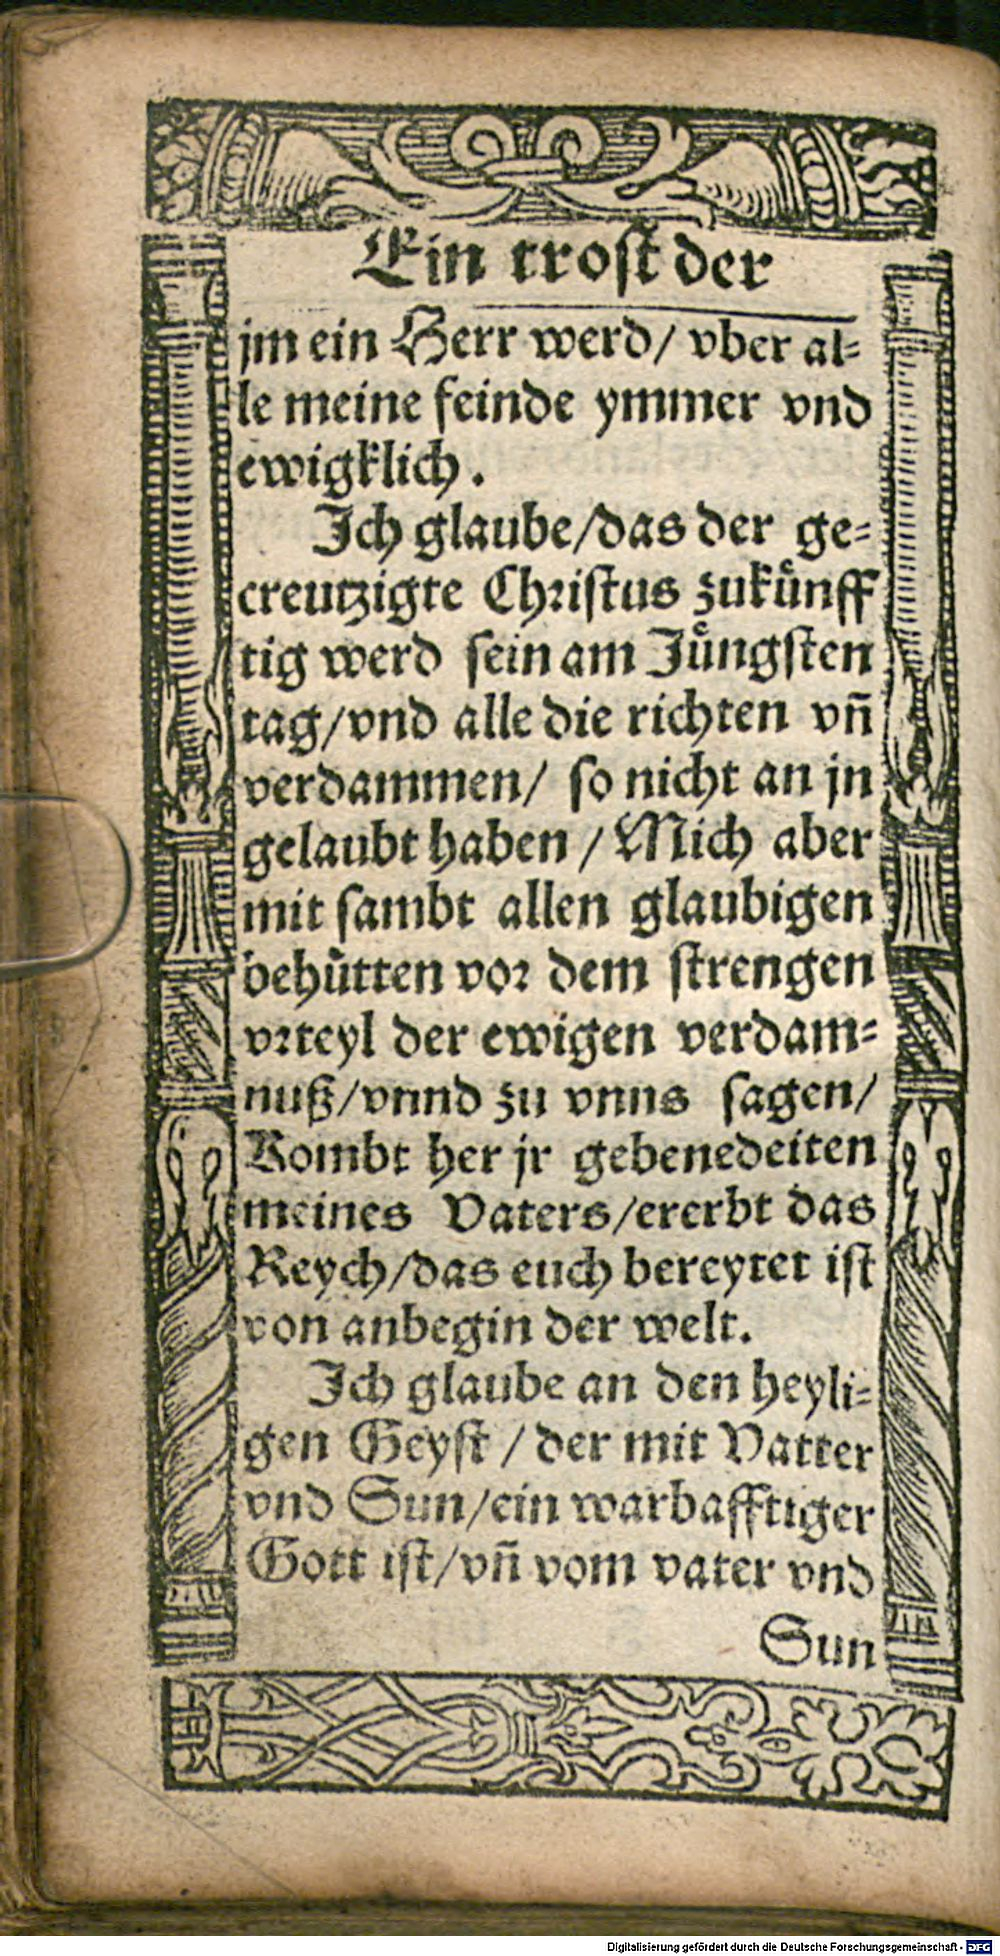 Ein trost der
jm ein Herr werd/ vber al⸗
le meine feinde ymmer vnd
ewigklich.
Ich glaube/das der ge⸗
creutzigte Christus zukuͤnff
tig werd sein am Juͤngsten
tag/vnd alle die richten vñ
verdammen/ so nicht an jn
gelaubt haben / Mich aber
mit sambt allen glaubigen
behuͤtten vor dem strengen
vrteyl der ewigen verdam⸗
nuß/vnnd zu vnns sagen/
Kombt her jr gebenedeiten
meines Vaters/ererbt das
Reych/das euch bereytet ist
von anbegin der welt.
Ich glaube an den heyli⸗
gen Geyst / der mit Vatter
vnd Sun/ein warhafftiger
Gott ist/vñ vom vater vnd
Sun
Digitalisierung gefördert durch die Deutsche Forschungsgemeinschaft - DFG